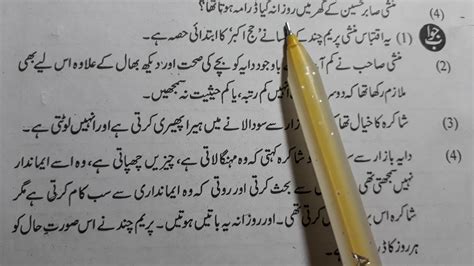 (4) منشی صابر حسین کے گھر میں روزانہ کیا ڈرامہ ہوتا تھا؟
جواب (1) یہ اقتباس منشی پریم چند کے حج اکبر کا ابتدائی حصہ ہے۔
(2) منشی صاحب نے کم باوجود دایہ کو بچے کی صحت اور دیکھ بھال کے علاوہ اس لیے بھی
ملازم رکھا تھا کہ دوسر انہیں کم رتبہ، یا کم حیثیت نہ سمجھیں۔
(3) شاکرہ کا خیال تھا بازار سے سودا لانے میں ہیرا پھیری کرتی ہے اور انہیں لوٹتی ہے۔
(4) دایہ بازار سے سود شاکرہ کہتی کہ وہ مہنگا لاتی ہے، چیزیں چھپاتی ہے، وہ اسے ایماندار
نہیں سمجھتی تھی سے بحث کرتی اور روتی کہ وہ ایمانداری سے سب کام کرتی ہے مگر
شاکرہ اس پر کرتی تھی۔ اور روزانہ یہ باتیں ہوتیں۔ پریم چند نے اس صورتِ حال کو
ہر روز کا ڈرا ہے۔